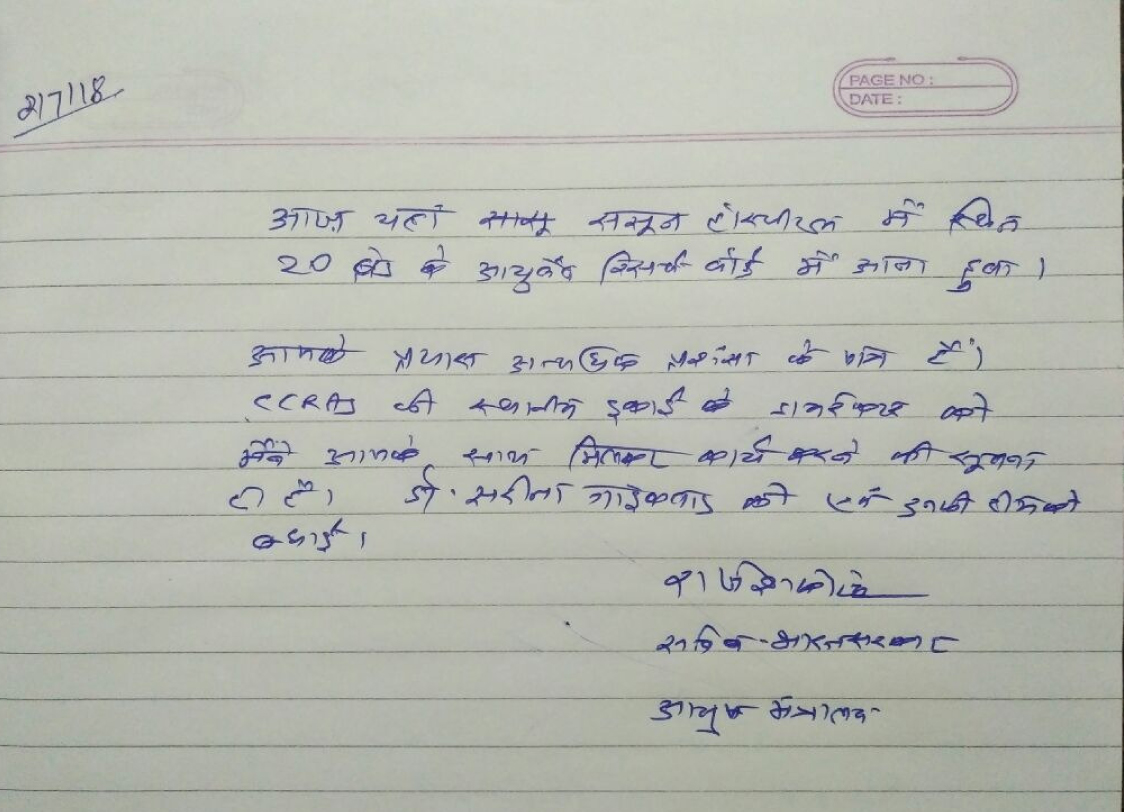 2/7/18
PAGE NO :
DATE :
आज यहां सासू ससून हॉस्पीटल में स्थित
20 बेड के आयुर्वेद रिसर्च वॉर्ड में आना हुवा ।
आपके प्रयास अत्यधिक प्रशंसा के पात्र हैं।
CCRAS की स्थानीय इकाई के डायरेक्टर को
मैंने आपके साथ मिलकर कार्य करने की सूचना
दी है। डॉ. सरीता गाईकवाड को एवं इनकी टीमको
बधाई।
सचिव-भारतसरकार
आयुष मंत्रालय